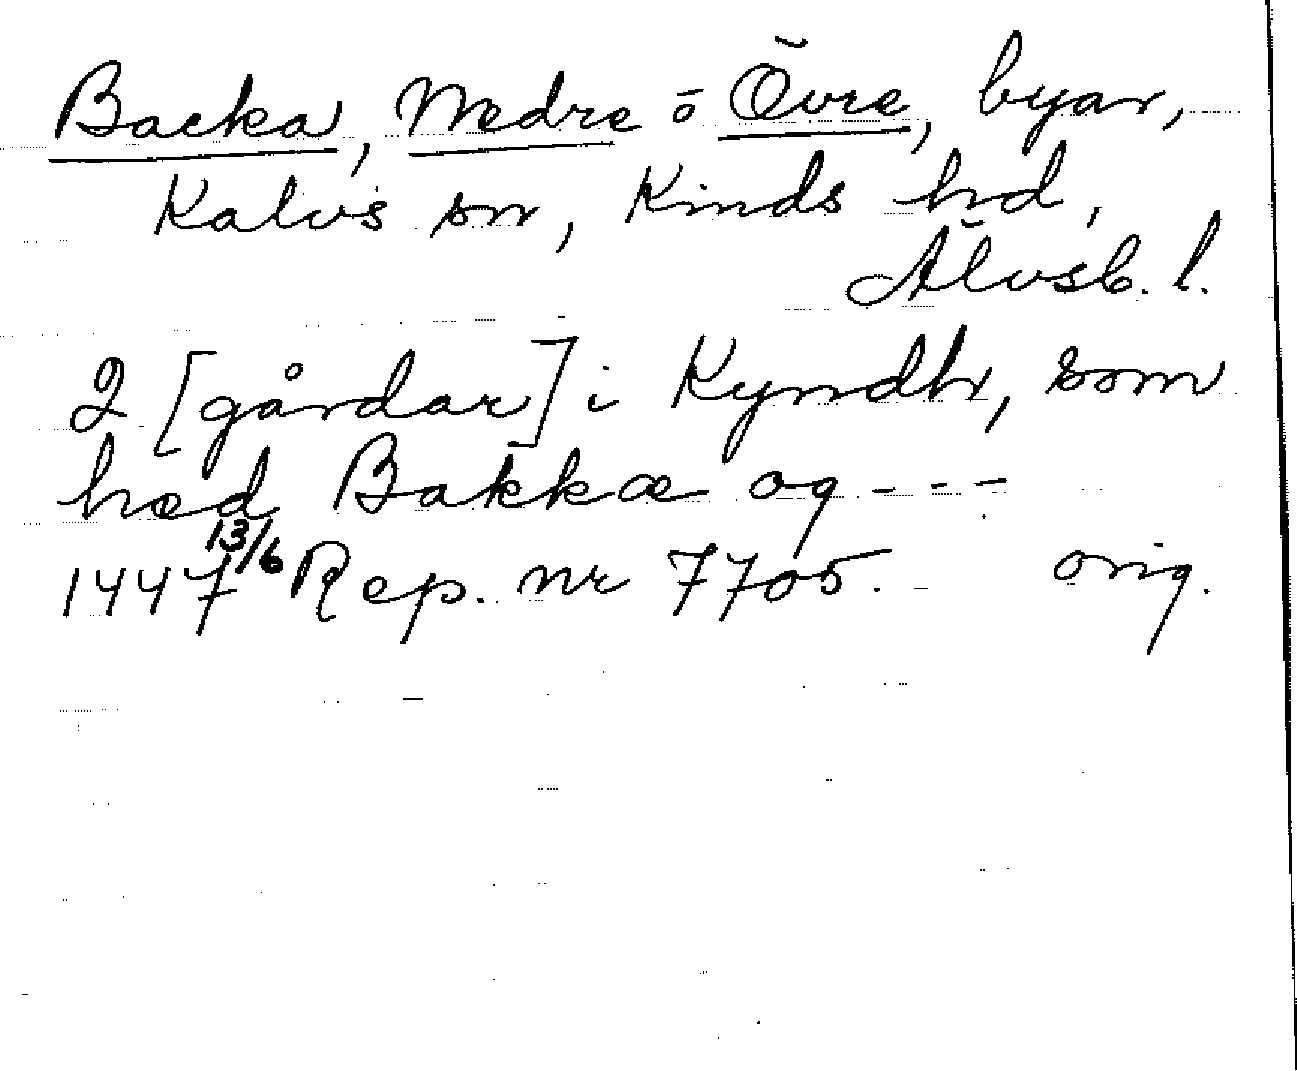 Backa, Nedre o Övre, byar,
Kalvs sn, Kinds hd,
Älvsb. l.
2 [gårdar] i Kyndh, som
hæd Bakkæ og - - -
1447 13/6 Rep. nr 7705. orig.